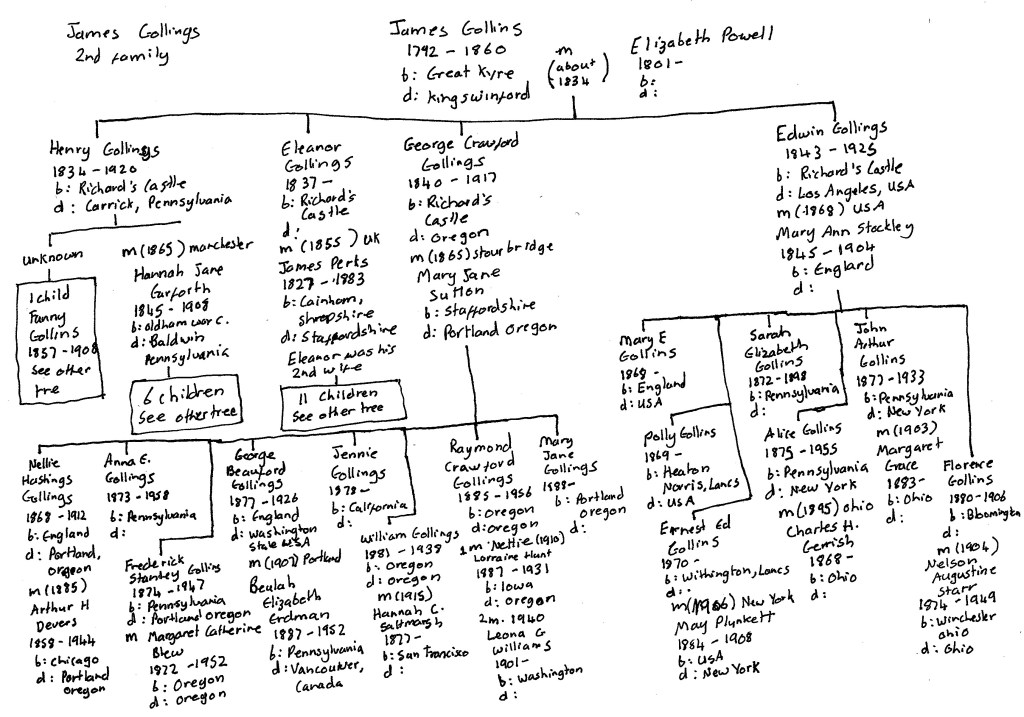 James Gollings
2nd family
James Gollins
1792 - 1860
b: Great Kyre
d: Kingswinford
m
(about
1834)
Elizabeth Powell
1801 -
b:
d:
Henry Gollings
1834 - 1920
b: Richard's Castle
d: Carrick, Pennsylvania
unknown
1 child
Fanny
Gollins
1857 - 1908
See other
tree
m (1865) manchester
Hannah Jane
Garforth
1845 - 1908
b: oldham
d: Baldwin
Pennsylvania
6 children
See other tree
Eleanor
Gollings
1837 -
b: Richard's
Castle
d:
m (1855) UK
James Perks
1827 - 1883
b: Cainham,
shropshire
d: Staffordshire
Eleanor was his
2nd wife
11 Children
See other tree
George Crawford
Gollings
1840 - 1917
b: Richard's
Castle
d: Oregon
m (1865) stourbridge
Mary Jane
Sutton
b: Staffordshire
d: Portland Oregon
Edwin Gollings
1843 - 1925
b: Richard's Castle
d: Los Angeles, USA
m (1868) USA
Mary Ann Stockley
1845 - 1904
b: England
d:
Nellie
Hastings
Gollings
1868 - 1912
b: England
d: Portland,
oregon
m (1885)
Arthur H
Devers
1858 - 1944
b: Chicago
d: Portland
Oregon
Anna E.
Gollings
1873 - 1958
b: Pennsylvania
d:
Frederick
Stanley Gollins
1874 - 1947
b: Pennsylvania
d: Portland Oregon
m Margaret Catherine
Blew
1872 - 1952
b: Oregon
d: Oregon
George
Beauford
Gollings
1877 - 1926
b: England
d: Washington
State USA
m (1907) Portland
Beulah
Elizabeth
Erdman
1887 - 1952
b: Pennsylvania
d: Vancouver,
Canada
Jennie
Gollings
1878 -
b: California
d:
William Gollings
1881 - 1938
b: Oregon
d: Oregon
m (1915)
Hannah C.
Saltmarsh
1877 -
b: San Francisco
d:
Raymond
Crawford
Gollings
1885 - 1956
b: Oregon
d: Oregon
1m. Nettie (1910)
Lorraine Hunt
1887 - 1931
b: Iowa
d: Oregon
2m. 1940
Leona G
Williams
1901 -
b: Washington
d:
Mary
Jane
Gollings
1888 -
b: Portland
oregon
d:
Mary E
Gollins
1868 -
b: England
d: USA
Polly Gollins
1869 -
b: Heaton
Norris, Lancs
d: USA
Ernest Ed
Gollins
b: Withington, Lancs
d:
m(1906) New York
May Plunkett
1884 - 1908
b: USA
d: New York
Sarah
Elizabeth
Gollins
1872 - 1898
b: Pennsylvania
d:
Alice Gollins
1875 - 1955
b: Pennsylvania
d: New York
m (1895) ohio
Charles H.
Gerrish
1868 -
b: Ohio
d:
John
Arthur
Gollins
1877 - 1933
b: Pennsylvania
d: New York
m (1903)
Margaret
Grace
1883 -
b: Ohio
d:
Florence
Gollins
1880 - 1906
b: Bloomington
d:
m (1904)
Nelson
Augustine
Starr
1874 - 1949
b: Winchester
ohio
d: Ohio